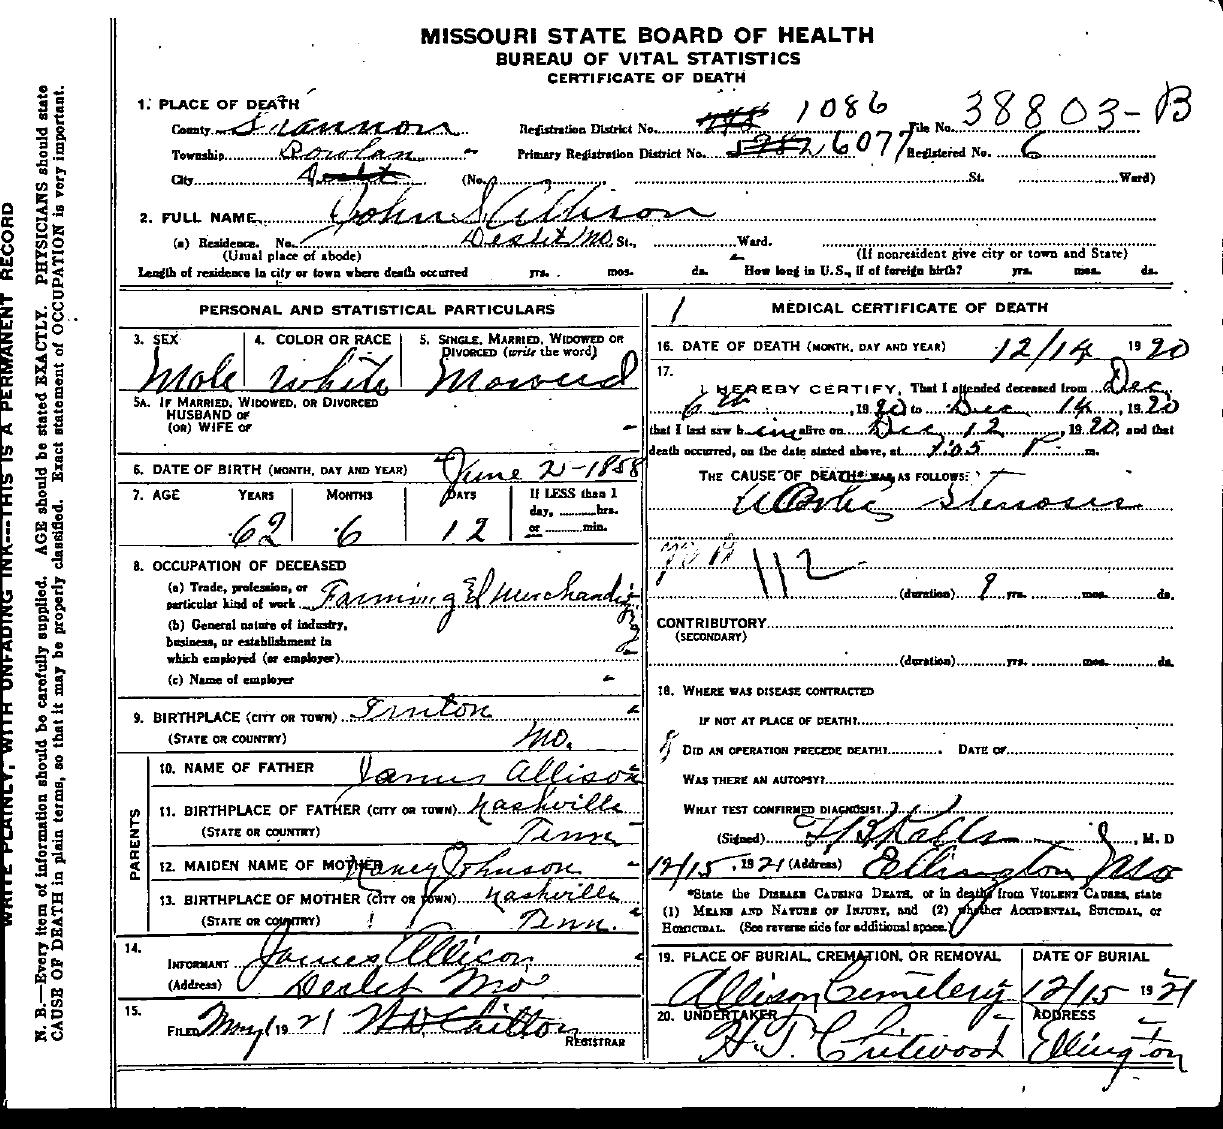 MISSOURI STATE BOARD OF HEALTH
BUREAU OF VITAL STATISTICS
CERTIFICATE OF DEATH
1. PLACE OF DEATH
County Shannon Registration District No. 1086 File No. 38803-B
Township Primary Registration District No. 6077 Registered No. 6
City (No. St. Ward)
2. FULL NAME John S Allison
(a) Residence. No. Deslet Mo. St., Ward.
(Usual place of abode) (If nonresident give city or town and State)
Length of residence in city or town where death occurred yrs. mos. ds. How long in U.S., if of foreign birth? yrs. mos. ds.
PERSONAL AND STATISTICAL PARTICULARS
3. SEX 4. COLOR OR RACE 5. SINGLE, MARRIED, WIDOWED OR
DIVORCED (write the word)
Male White
5A. IF MARRIED, WIDOWED, OR DIVORCED
HUSBAND OF
(OR) WIFE OF
6. DATE OF BIRTH (MONTH, DAY AND YEAR) June 2-1858
7. AGE YEARS MONTHS DAYS If LESS than 1
day, hrs.
or min.
62 6 12
8. OCCUPATION OF DECEASED
(a) Trade, profession, or
particular kind of work Farming
(b) General nature of industry,
business, or establishment in
which employed (or employer)
(c) Name of employer
9. BIRTHPLACE (CITY OR TOWN)
(STATE OR COUNTRY) Mo.
PARENTS
10. NAME OF FATHER James Allison
11. BIRTHPLACE OF FATHER (CITY OR TOWN) Nashville
(STATE OR COUNTRY) Tenn
12. MAIDEN NAME OF MOTHER Nancy Johnson
13. BIRTHPLACE OF MOTHER (CITY OR TOWN) Nashville
(STATE OR COUNTRY) Tenn.
14.
INFORMANT James Allison
(Address) Deslet Mo
15.
FILED May 1 1921 W D Chilton
REGISTRAR
1 MEDICAL CERTIFICATE OF DEATH
16. DATE OF DEATH (MONTH, DAY AND YEAR) 12/14 1920
17.
I HEREBY CERTIFY, That I attended deceased from Dec
6th, 1920 to Dec 14, 1920
that I last saw him alive on Dec 12, 1920, and that
death occurred, on the date stated above, at 7:05 P m.
THE CAUSE OF DEATH* WAS AS FOLLOWS:
Aortic Stenosis
112
(duration) 9 yrs. mos. ds.
CONTRIBUTORY
(SECONDARY)
(duration) yrs. mos. ds.
18. WHERE WAS DISEASE CONTRACTED
IF NOT AT PLACE OF DEATH?
DID AN OPERATION PRECEDE DEATH? DATE OF
WAS THERE AN AUTOPSY?
WHAT TEST CONFIRMED DIAGNOSIS?
(Signed), M. D
12/15, 1921 (Address) Ellington Mo
*State the DISEASE CAUSING DEATH, or in deaths from VIOLENT CAUSES, state
(1) MEANS AND NATURE OF INJURY, and (2) whether ACCIDENTAL, SUICIDAL, or
HOMICIDAL. (See reverse side for additional space.)
19. PLACE OF BURIAL, CREMATION, OR REMOVAL DATE OF BURIAL
Allison Cemetery 12/15 1921
20. UNDERTAKER ADDRESS
H.T. Chitwood Ellington
WRITE PLAINLY, WITH UNFADING INK---THIS IS A PERMANENT RECORD
N. B.—Every item of information should be carefully supplied. AGE should be stated EXACTLY. PHYSICIANS should state
CAUSE OF DEATH in plain terms, so that it may be properly classified. Exact statement of OCCUPATION is very important.